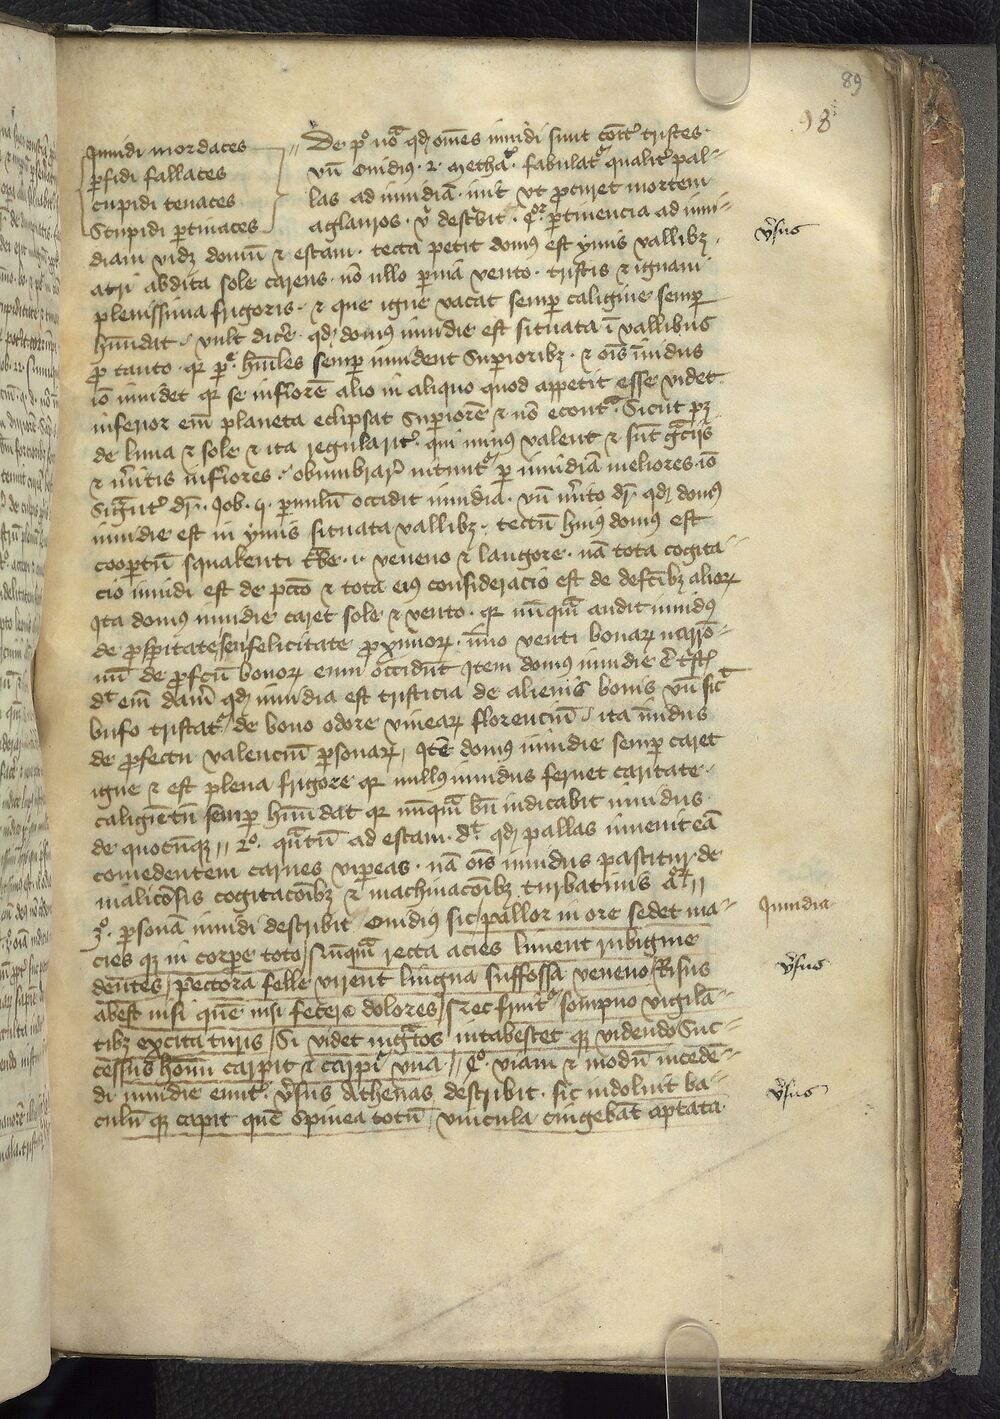 89
98
Inuidi mordaces
p̱fidi fallaces
cupidi tenaces
Stupidi p̱tinaces
De p͛o no͛ qd͛ om̅es inuidi sunt tristes
vn̅ Ouidius · 2 · metha͛ · fabulat͛ qualit͛ pal-
las ad inuidiā · iuit vt mortem
aglauros · descͥbit · p̱tinencia ad inui-
diam vidz domū ⁊ escam · tecta petit domꝰ est ymis vallibꝫ ·
atri abdita sole carens · nō ullo p̱uiā vento · tristis ⁊ ignaui
plenissima frigoris · ⁊ que igne vacat semp̱ caligine semp̱
hūdat · vult dic͛e · qd͛ domꝰ inuidie est situata ī vallibus
ꝓ tanto · qꝛ hūiles semp̱ inuident Sup̱ioribꝫ · ⁊ oīs īuidus
iō inuidet qꝛ se inf̛iorē alio in aliquo quod appetit esse videt
inferior em̄ planeta eclipsat Sup̱iorē ⁊ nō econt͛ª · Sicut pꝫ
de luna ⁊ sole ⁊ ita regularit͛ · qui minꝰ valent ⁊ sūt
⁊ m͛itis inf̛iores · obumbrar͛ nitunt͛ p̱ inuidiā meliores · iō
dr̄ · Job · 5 · p̱uulū occidit inuidia · vn̄ m͛ito dr̄ · qd͛ domꝰ
inuidie est in ymis situata vallibꝫ · tectū huiꝰ domꝰ est
coop̱tū squalenti tabe · i · veneno ⁊ langore · nā tota cogita-
cio inuidi est de pctō ⁊ tota eiꝰ consideracio est de defctībꝫ alioꝝ
Ita domꝰ inuidie caret sole ⁊ vento · qꝛ nūqᷓ audit inuidꝰ
de ꝓsp̱itate seu felicitate ꝓximoꝝ · īmo venti bonaꝝ narrō-
nū de ꝓfectū bonoꝝ eum occidūt Item domꝰ inuidie ē
dt͛ em̄ dam̄ qd͛ inuidia est tristicia de alienis bonis vn̄ sic͛
bufo tristat͛ de bono odore vineaꝝ florenciū / ita īuidus
de ꝓfectu valenciū p̱sonaꝝ / Itē domꝰ inuidie semp̱ caret
igne ⁊ est plena frigore qꝛ nullꝰ inuidus feruet caritate ·
caligīe tn̄ semp̱ hūdat qꝛ nūqᷓ bn̄ iudicabit inuidus
de quocūqꝫ // 2o · qᷓtū ad escam · dt͛ qd͛ pallas inuenit eā
comedentem carnes vip̱eas · nā oīs inuidus pascitur de
maliciosis cogitacōībꝫ ⁊ machinacōībꝫ turbatiuis
3o · p̱sonā inuidi describit Ouidiꝰ sic / pallor in ore sedet ma-
cies qꝫ in corp̱e toto / Nūqᷓ recta acies liuent rubigine
dentes / pectora felle virent lingua suffossa veneno / Risus
abest nisi quē nisi fecere dolores / Nec fruit͛ sompno vigilā-
tibꝫ excita curis / Si videt ingͣtos intabescet qꝫ videndo Suc-
cessus hoīm carpit ⁊ carpit͛ vna // 4o · viam ⁊ modū incedē-
di inuidie v͛sus Athenas describit · sic indoluit ba-
culū qꝫ capit quē spinea totū / vincula cingebāt aptata
v͛sus
Inuidia
v͛sus
v͛sus